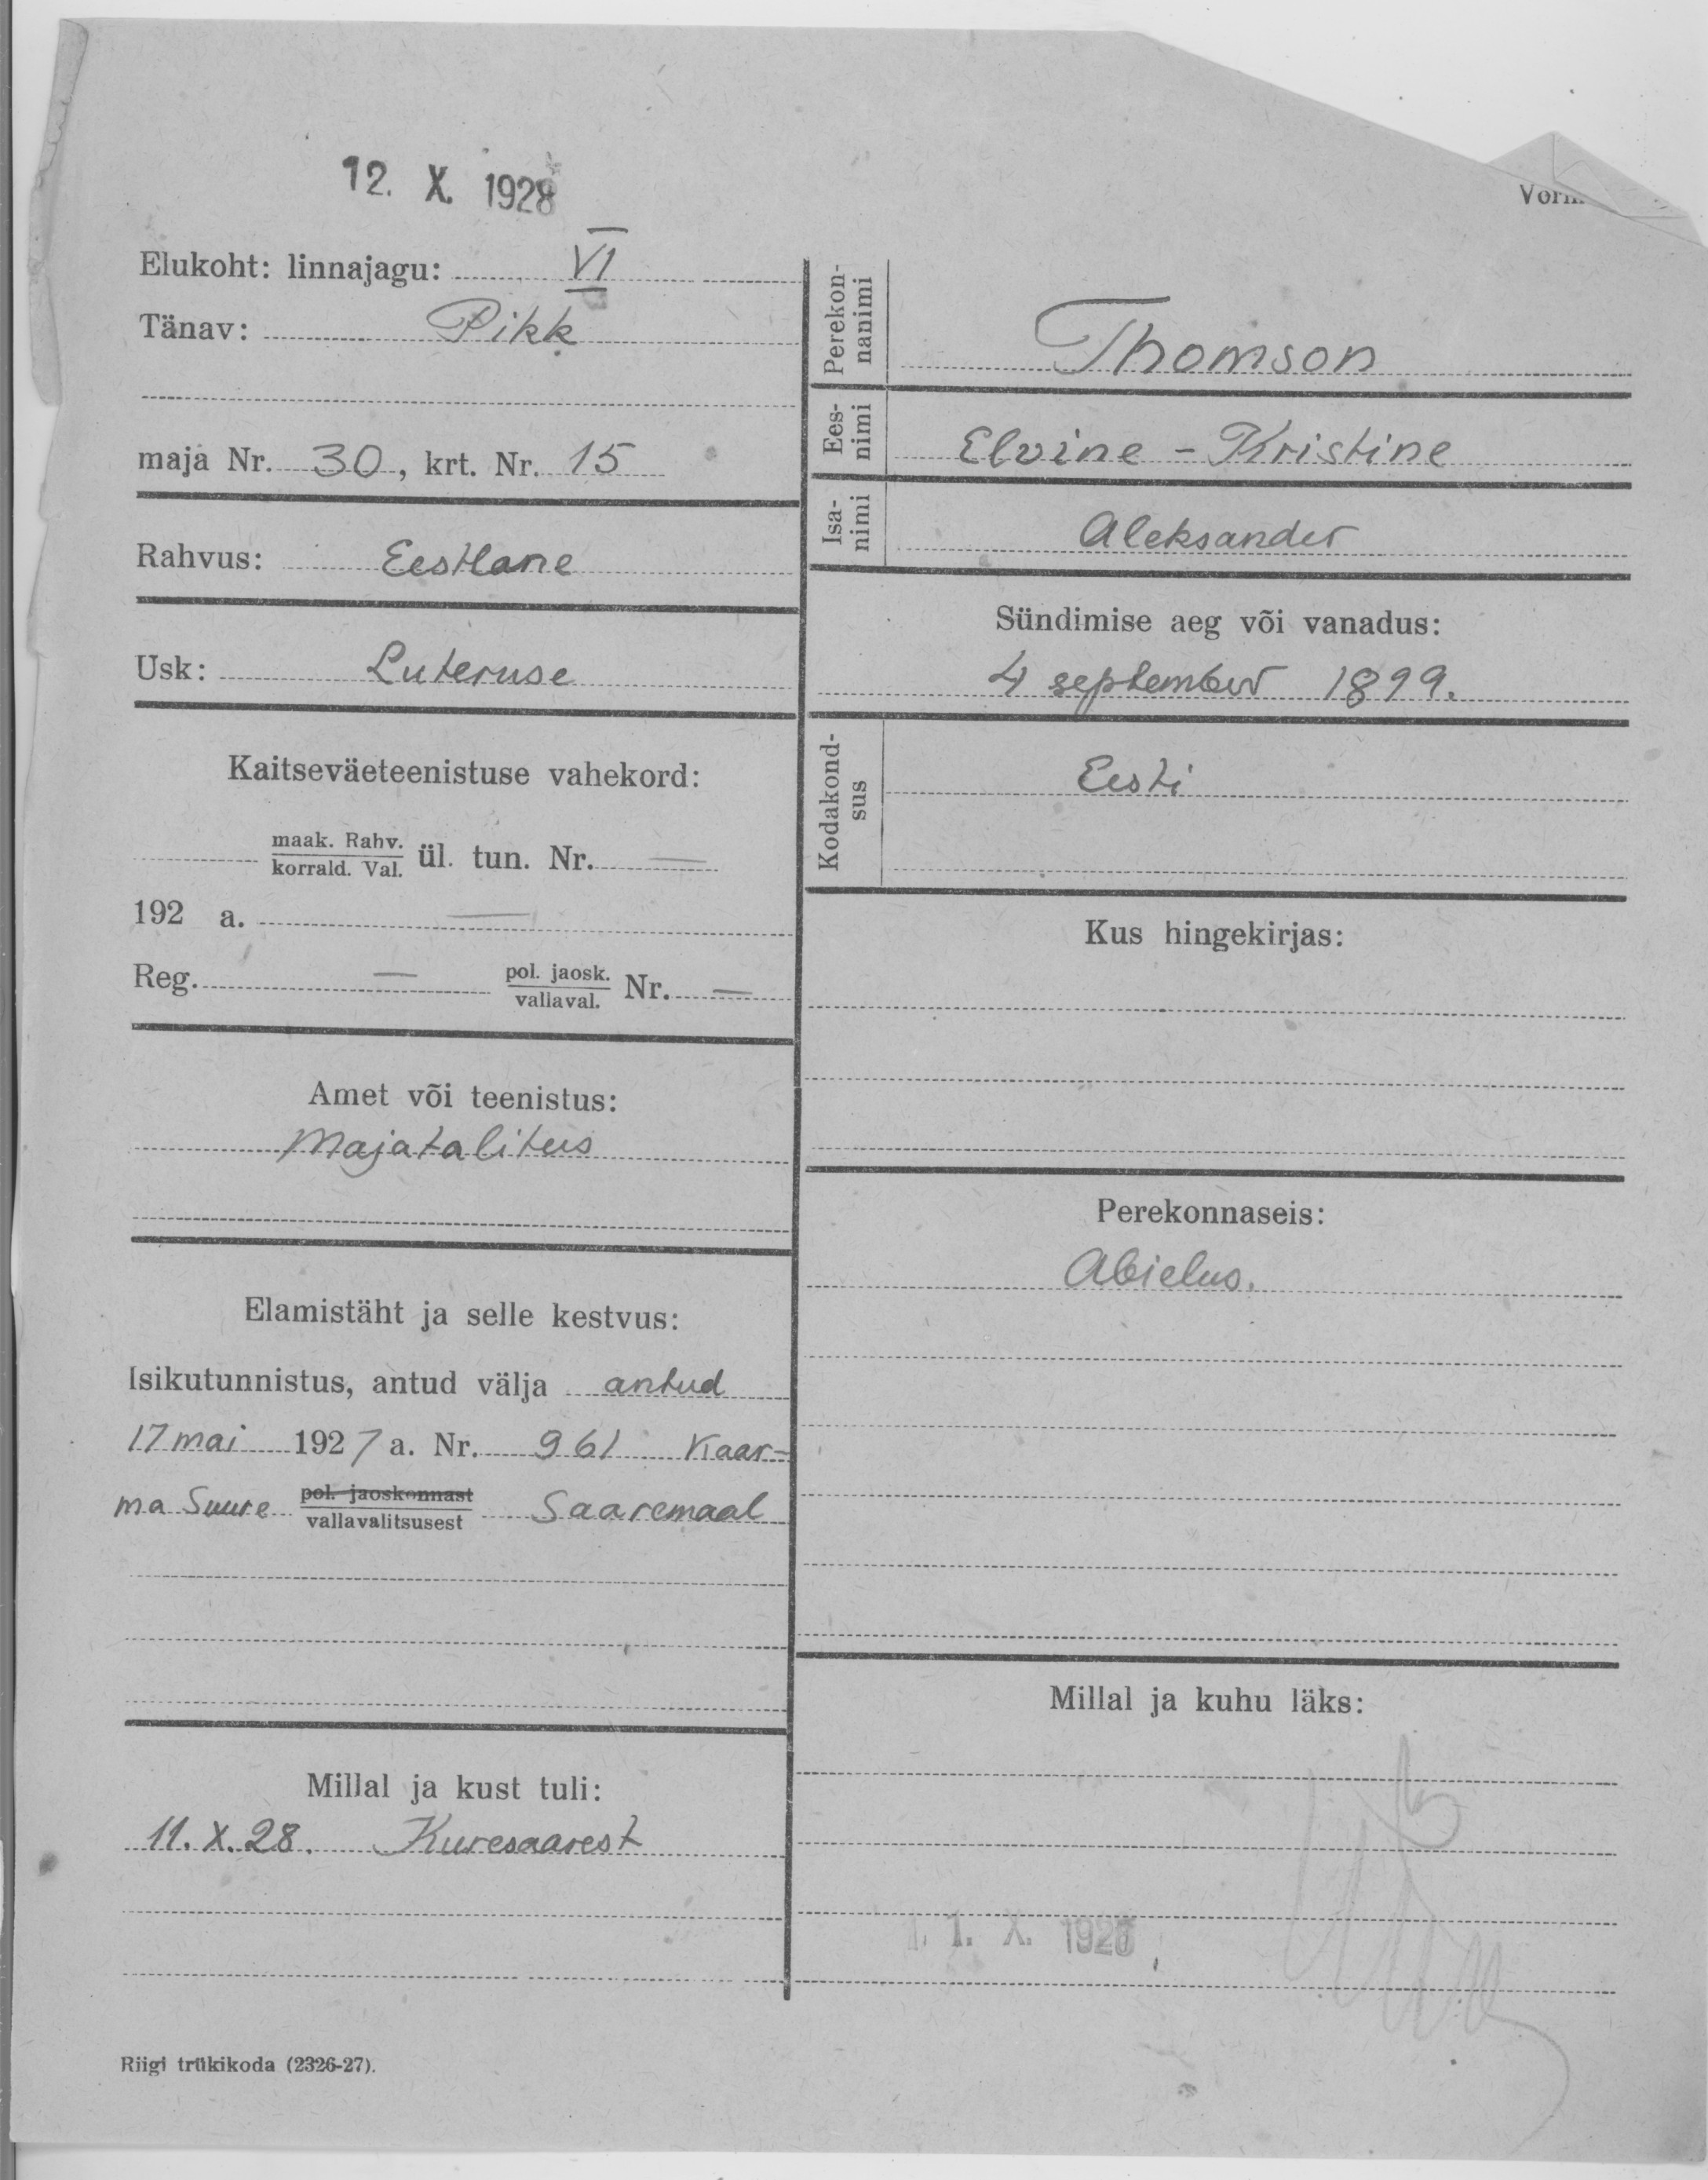 12. X. 1928
Elukoht: linnajagu: VI
Tänav: Pikk
maja Nr. 30, krt. Nr. 15
Rahvus: Eestlane
Usk: Luteruse
Kaitseväeteenistuse vahekord:
maak. Rahv.
korrald. Val. ül. tun. Nr. —
192 a. —
Reg. — pol. jaosk.
vallaval. Nr. —
Amet või teenistus:
Majatalitus
Elamistäht ja selle kestvus:
Isikutunnistus, antud välja antud
17 mai 1927 a. Nr. 961 Kaar-
ma Suure pol. jaoskonnast
vallavalitsusest Saaremaal
Millal ja kust tuli:
11. X. 28. Kuresaarest
Riigi trükikoda (2326-27).
Perekon-
nanimi
Thomson
Ees-
nimi
Elvine - Kristine
Isa-
nimi
Aleksander
Sündimise aeg või vanadus:
4 september 1899.
Kodakond-
sus
Eesti
Kus hingekirjas:
Perekonnaseis:
Abielus.
Millal ja kuhu läks:
1. X. 1928